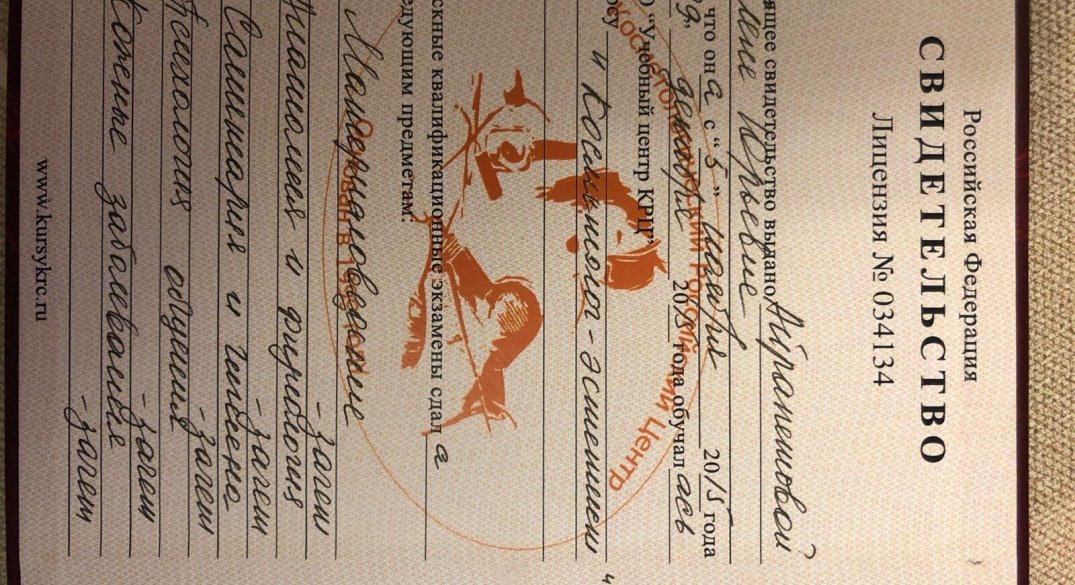 Российская Федерация
СВИДЕТЕЛЬСТВО
Лицензия № 034134
ящее свидетельство выдано Айрапетовой
Юрьевне
что она с "5" января 2015 года
2015 года обучалась
О "Учебный центр КРЦ"
рсу "Косметолог-эстетист"
скные квалификационные экзамены сдала
едующим предметам:
Материаловедение
- зачет
Анатомия и физиология
- зачет
Санитария и гигиена
- зачет
Психология общения
- зачет
Кожные заболевания
- зачет
www.kursykrc.ru
Косметологический Центр